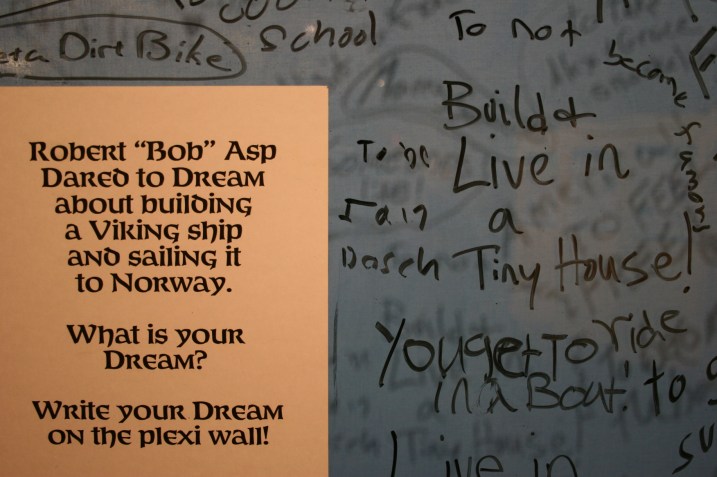 Dirt Bike
School
To not
become famous
Robert "Bob" Asp
Dared to Dream
about building
a Viking ship
and sailing it
to Norway.
What is your
Dream?
Write your Dream
on the plexi wall!
Build &
Live in
a
Tiny House!
To be
You get To ride
in a Boat!
to
Live in